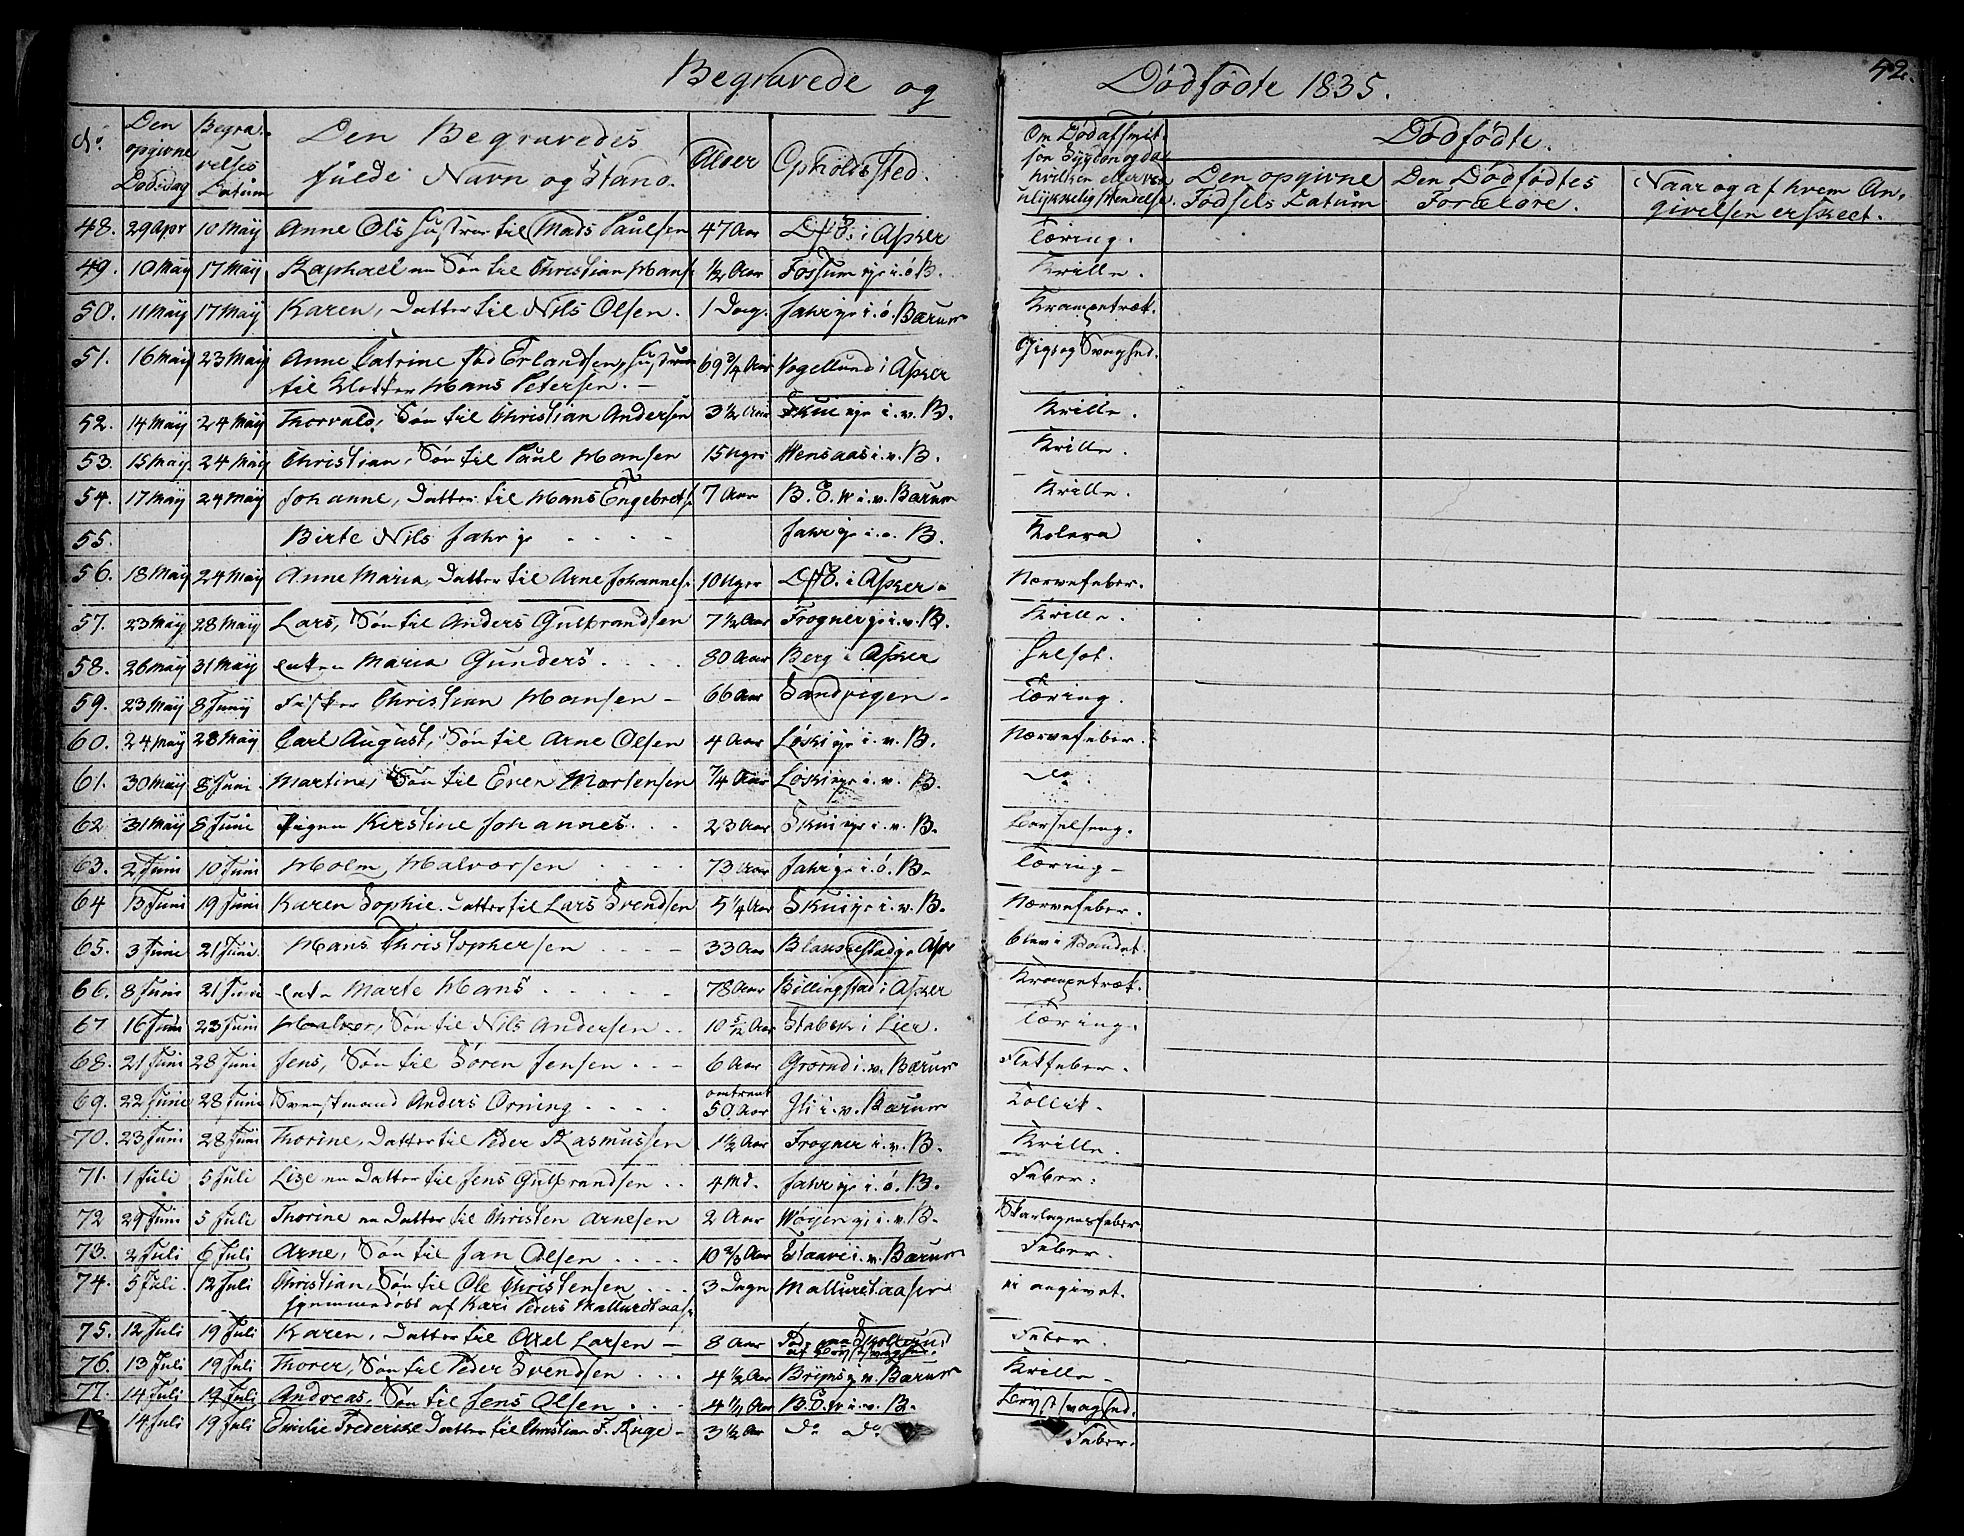 Begravede og Dødfødte 1835. 42.
No. Den opgivne Dødsdag Begravelses Datum Den Begravedes fulde Navn og Stand. Alder Opholds Sted. Om Død af smitsom Sygdom og da hvilken eller ved ulykkelig Hændelse Dødfødte.
Den opgivne Fødsels Datum Den Dødfødtes Forældre. Naar og af hvem Angivelsen er skeet.
48. 29 Apr 10 May Anne Ols Hustrue til Mads Paulsen 47 Aar i Asker Tæring.
49. 10 May 17 May Raphael en Søn til Christian Hans. ½ Aar Fossum eje i. ö B. Krille.
50. 11 May 17 May Karen, Datter til Nils Olsen. 1 Dag. Jahr eje i. ö. Bærum Krampetræk.
51. 16 May 23 May Anne Catrine fød Erlandsen, Hustrue 69 3/4 Aar Vogellund i Asker Gigt og Svaghed.
til Klokker Hans Petersen. –
52. 14 May 24 May Thorvald, Søn til Christian Andersen 3 ½ Aar Skui eje i. v. B. Krille.
53. 15 May 24 May Christian, Søn til Paul Hansen 15 Uger Hensaas i. v. B. Krille.
54. 17 May 24 May Johanne, Datter til Hans Engebrets. 7 Aar B. V. W i. v. Bærum Krille.
55. Birte Nils Jahr eje . . . . – Jahr eje i. o. B. Kolera
56. 18 May 24 May Anne Maria, Datter til Arne Johannes. 10 Uger i Asker – Nervefeber.
57. 23 May 28 May Lars, Søn til Anders Gulbrandsen 7 ½ Aar Frogner eje i. v. B. Krille.
58. 26 May 31 May Enken Maria Gunders. . . . . 80 Aar Berg i Asker
59. 23 May 8 Junij Fisker Christian Hansen – 66 Aar Sandvigen – Tæring.
60. 24 May 28 May Carl August, Søn til Arne Olsen 4 Aar Løski eje i. v. B. Nervefeber.
61. 30 May 8 Juni. Martin, Søn til Even Mortensen 7/4 Aar Løski eje i. v. B. do.
62. 31 May 8 Juni Pigen Kirstine Johannes. . . 23 Aar Skui eje i. v. B. Barselseng.
63. 2 Juni 10 Juni Holm Halvorsen . . . . 73 Aar Jahr eje i. ö. B. Tæring –
64 13 Juni 19 Juni Karen Sophie. Datter til Lars Svendsen 5 1/4 Aar Skui eje i. v. B. Nervefeber.
65. 3 Junie 21 Juni. Hans Christophersen . . . . 33 Aar Blakkestad eje Asker blev i Vandet.
66. 8 Juni 21 Juni Enken Marte Hans . . . . . 78 Aar Billingstad i Asker Krampetræk.
67 16 Juni 23 Juni Halvor, Søn til Nils Andersen . . 10 5/12 Aar Stabek i Lier. Tæring.
68. 21 Juni 28 Juni Jens, Søn til Sören Jensen . . – 6 Aar Grøsnd i. v. Bærum Fletfeber.
69. 22 Junie 28 Juni Svenskmand Anders Orning . . . . omtrent 50. Aar Gli i. v. Bærum Kollik.
70. 23 Juni 28 Juni Thorine, Datter til Peder Rasmussen 1 ½ Aar Frogner i. v. B. Krille.
71. 1 Juli 5 Juli Lise en Datter til Jens Gulbrandsen . . 4 Md. Jahr eje i. ö. B. Feber.
72 29 Juni 5 Juli Thorine en Datter til Christen Arnesen 2 Aar Wøyen eje i. v. B. Skarlagensfeber
73. 2 Juli 6 Juli Arne, Søn til Jan Olsen . . . . 10 2/3 Aar Staave i. v. Bærum Feber.
74. 5 Juli. 12 Juli Christian, Søn til Ole Christensen . . . 3 Dage Mallurstaasen ei angivet.
hjemmedøbt af Kari Peders Mallurdstaas.
75. 12 Juli 19 Juli Karen, Datter til Axel Larsen – 8 Aar Feber.
76. 13 Juli 19 Juli Thorer, Søn til Peder Svendsen . . . 4 ½ Aar v. Bærum Krille –
77. 14 Juli 19 Juli Andreas, Søn til Jens Olsen . . . B. V. W i. v. B. Brystsvaghed.
14 Juli 19 Juli Emilie Frederikke Datter til Christian F. Ruge – 3 ½ Aar do do Feber.